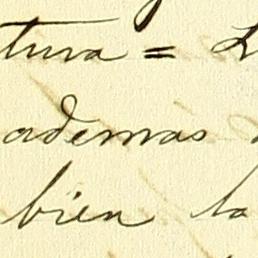 tura =
ademas
bien la